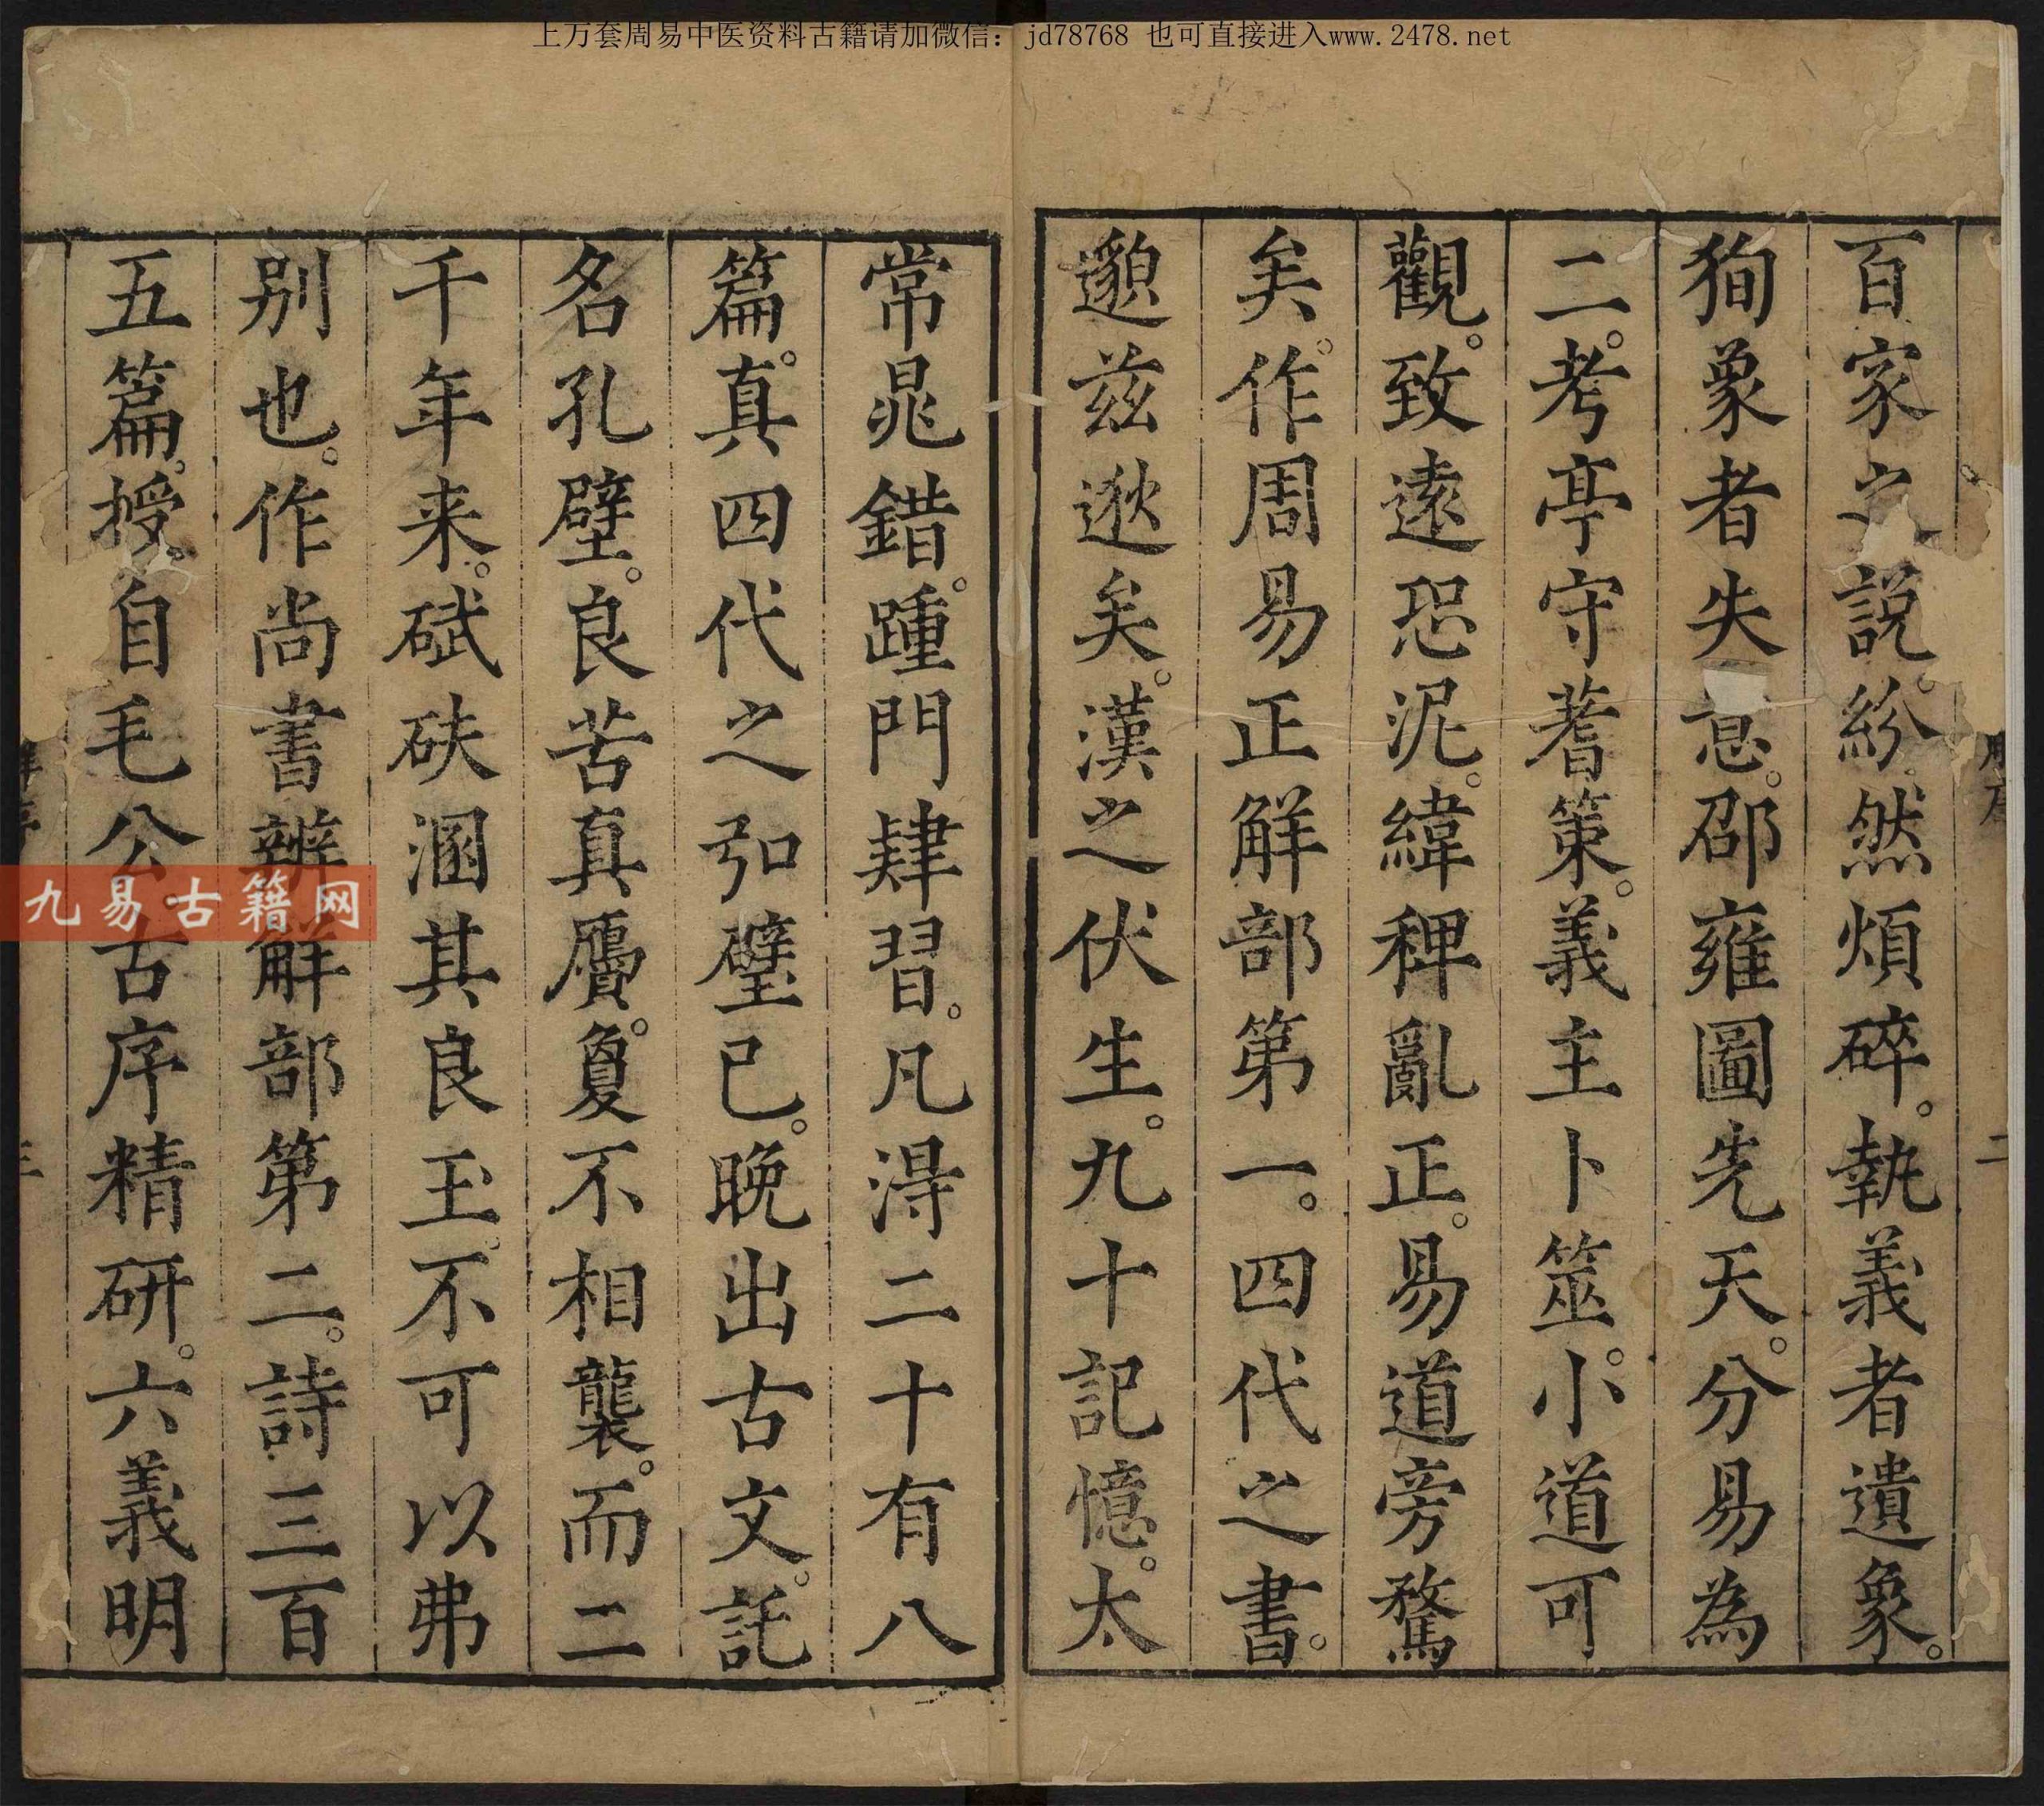 上万套周易中医资料古籍请加微信：jd78768 也可直接进入www.2478.net
百家之說。紛然煩碎。執義者遺象。
狥象者失意。邵雍圖先天。分易為
二。考亭守蓍策。義主卜筮。小道可
觀。致遠恐泥。緯稗亂正。易道旁騖
矣。作周易正解部第一。四代之書。
邈兹逖矣。漢之伏生。九十記憶。太
常晁錯。踵門肄習。凡淂二十有八
篇。真四代之弘璧已。晚出古文。託
名孔壁。良苦真贗。敻不相襲。而二
千年来。碔砆溷其良玉。不可以弗
别也。作尚書辨解部第二。詩三百
五篇。授自毛公。古序精研。六義明
二
三
九易古籍网